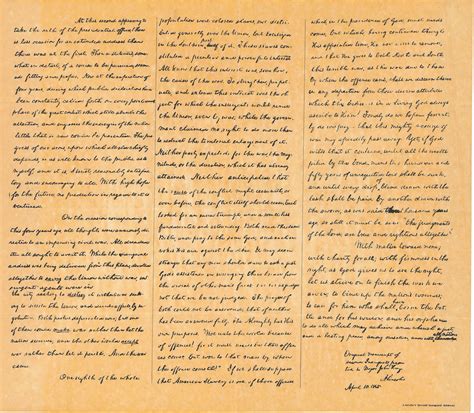 At this second appearing to
take the oath of the presidential office, there
is less occasion for an extended address than
there was at the first. Then a statement, some-
what in detail, of a course to be pursued, seem-
ed fitting and proper. Now, at the expiration of
four years, during which public declarations have
been constantly called forth on every point and
phase of the great contest which still absorbs the
attention, and engrosses the energies of the nation,
little that is new could be presented. The prog-
ress of our arms, upon which all else chiefly
depends, is as well known to the public as to
myself; and it is, I trust, reasonably satisfac-
tory and encouraging to all. With high hope
for the future, no prediction in regard to it is
ventured.
On the occasion corresponding to
this four years ago, all thoughts were anxiously di-
rected to an impending civil war. All dreaded
it all sought to avert it. While the inaugural
address was being delivered from this place, devoted
altogether to saving the Union without war, in-
surgent agents were in
the city seeking to destroy it without war seek-
ing to dissolve the Union, and divide effects, by nego-
tiation. Both parties deprecated war; but one
of them would make war rather than let the
nation survive; and the other would accept
war rather than let it perish. And the war
came.
One eighth of the whole
population were colored slaves, not distri-
buted generally over the Union, but localized
in the Southern part of it. These slaves con-
stituted a peculiar and powerful interest.
All knew that this interest was, somehow,
the cause of the war. To strengthen, perpet-
uate, and extend this interest was the ob-
ject for which the insurgents would rend
the Union, even by war; while the govern-
ment claimed no right to do more than
to restrict the territorial enlargement of it.
Neither party expected for the war, the mag-
nitude, or the duration, which it has already
attained. Neither anticipated that
the cause of the conflict might cease with, or
even before, the conflict itself should cease. Each
looked for an easier triumph, and a result less
fundamental and astounding. Both read the same
Bible, and pray to the same God; and each in-
vokes His aid against the other. It may seem
strange that any men should dare to ask a just
God's assistance in wringing their bread from
the sweat of other men's faces; but let us judge
not that we be not judged. The prayers of
both could not be answered; that of neither
has been answered fully. The Almighty has His
own purposes. "Woe unto the world because
of offences! for it must needs be that offen-
ces come; but woe to that man by whom
the offence cometh!" If we shall suppose
that American Slavery is one of those offences
which, in the providence of God, must needs
come, but which, having continued through
His appointed time, He now wills to remove,
and that He gives to both North and South,
this terrible war, as the woe due to those
by whom the offence came, shall we discern there-
in any departure from those divine attributes
which the believers in a Living God always
ascribe to Him? Fondly do we hope, fervent-
ly do we pray, that this mighty scourge of
war may speedily pass away. Yet, if God
wills that it continue, until all the wealth
piled by the bond-man's two hundred and
fifty years of unrequited toil shall be sunk,
and until every drop of blood drawn with the
lash, shall be paid by another drawn with
the sword, as was said three thousand years
ago, so still it must be said "the judgments
of the Lord, are true and righteous altogether"
With malice toward none;
with charity for all; with firmness in the
right, as God gives us to see the right,
let us strive on to finish the work we
are in; to bind up the nation's wounds;
to care for him who shall have borne the bat-
tle, and for his widow, and his orphan
to do all which may achieve and cherish a just,
and a lasting peace, among ourselves, and with
Original manuscript of
second Inaugural presented
to Major John Hay
A. Lincoln
April 10, 1865